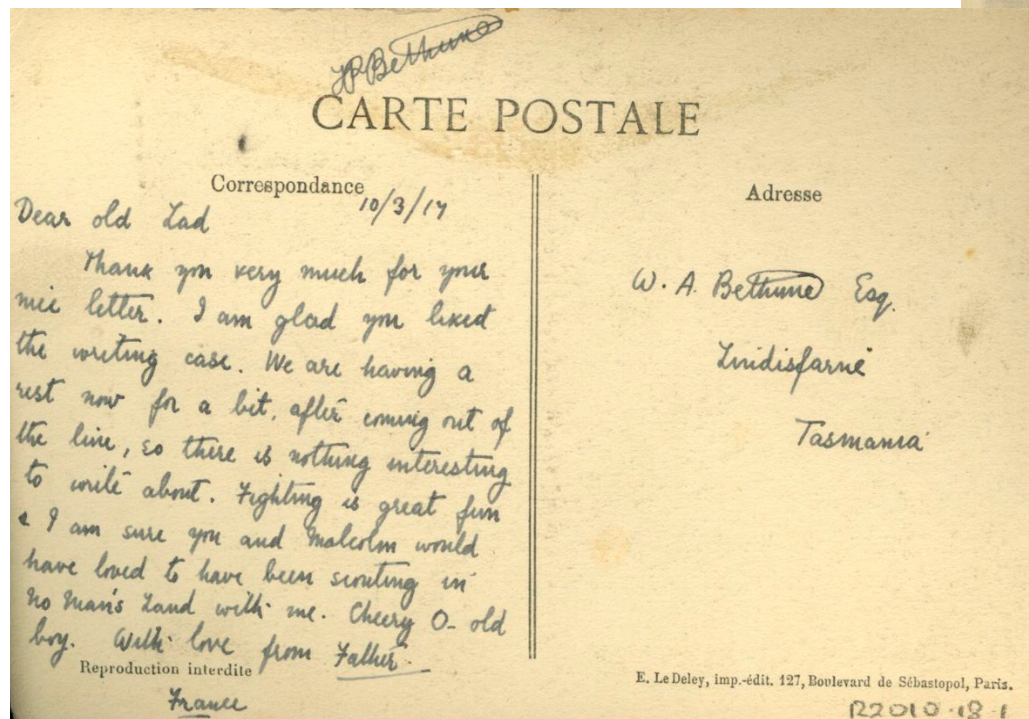 Bethune
CARTE POSTALE
Correspondance
10/3/17
Dear old Lad
Thank you very much for your
nice letter. I am glad you liked
the writing case. We are having a
rest now for a bit, after coming out of
the line, so there is nothing interesting
to write about. Fighting is great fun
& I am sure you and Malcolm would
have loved to have been scouting in
No Man's Land with me. Cheery O- old
boy. With love from Father
Reproduction interdite
France
Adresse
W. A. Bethune Esq.
Lindisfarne
Tasmania
E. Le Deley, imp.-édit. 127, Boulevard de Sébastopol, Paris.
R2010-18-1